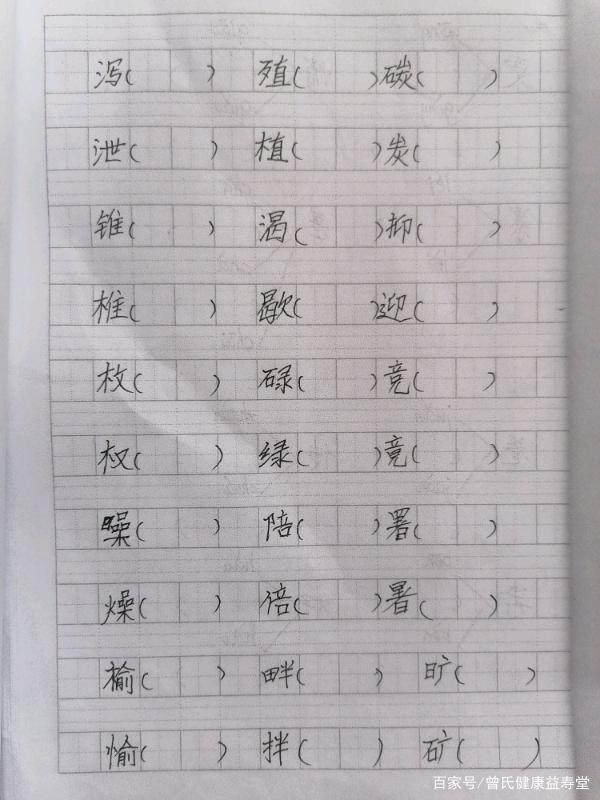 泻( ) 殖( ) 碳( )
泄( ) 植( ) 炭( )
锥( ) 渴( ) 抑( )
椎( ) 歇( ) 迎( )
枚( ) 碌( ) 竞( )
权( ) 绿( ) 竟( )
噪( ) 陪( ) 署( )
燥( ) 倍( ) 暑( )
榆( ) 畔( ) 旷( )
愉( ) 拌( ) 矿( )
百家号/曾氏健康益寿堂